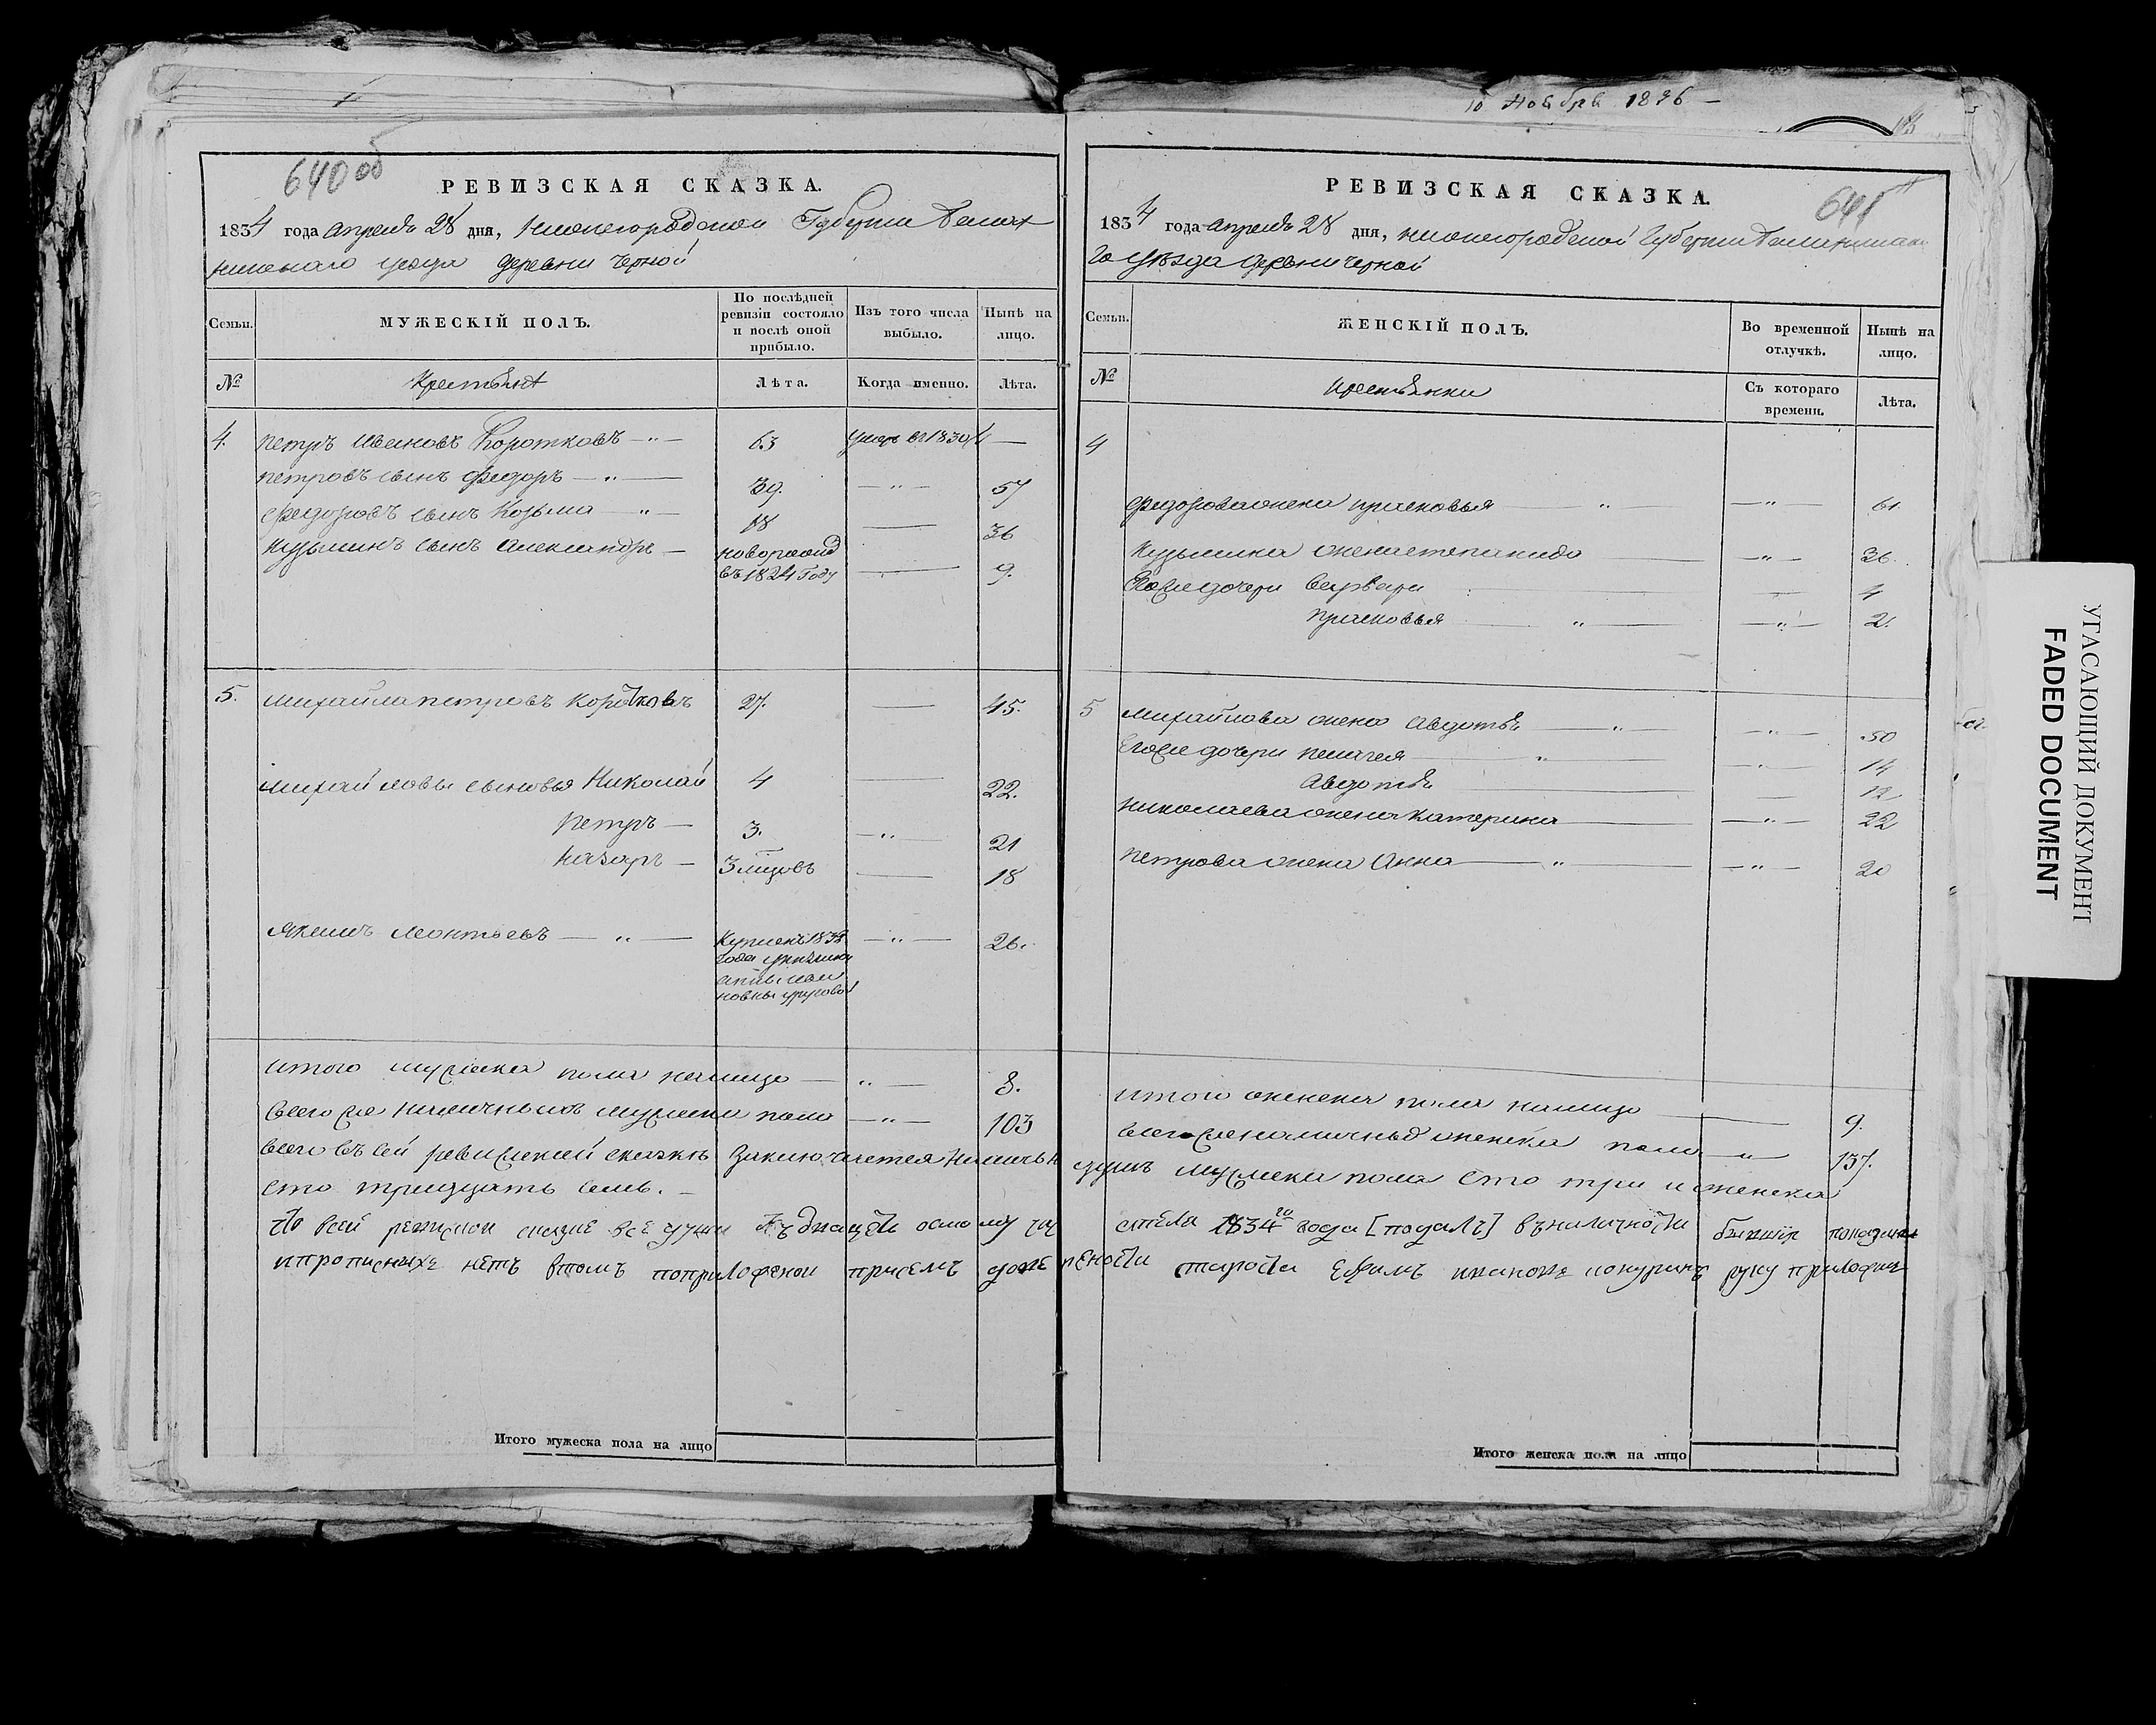 10 Ноября 1896 —
640 об
РЕВИЗСКАЯ СКАЗКА.
1834 года апреля 28 дня, нижегородской Губерни Балах
нинскаго уезда деревни Черной
Семьи.
МУЖЕСКІЙ ПОЛЪ.
По послѣдней ревизіи состояло и послѣ оной прибыло.
Изъ того числа выбыло.
Нынѣ на лицо.
№
Крестьяне
Лѣта.
Когда именно.
Лѣта.
4. петръ Ивановъ Коротковъ — 63 умеръ въ 1830 —
петровъ сынъ Федоръ — 39. — 57
Федоровъ сынъ Козьма — 18 — 36
Кузьминъ сынъ Александръ — новорожд — 9.
въ 1824 году
5. михайла петровъ коротковъ 27. — 45.
михайловы сыновья Николай 4 — 22.
Петръ — 3. — 21
Назаръ — 3 мѣцовъ — 18
Якимъ Леонтьевъ — Купленъ — 26.
года
итого мужска пола налицо — 8.
всего же наличныхъ мужска пола — 103
всего въ сей ревижской сказкѣ заключается
сто тридцать семь. —
Что всей сказке все души
нетъ втомъ
Итого мужеска пола на лицо
641
РЕВИЗСКАЯ СКАЗКА.
1834 года апреля 28 дня, нижегородской Губерни
го уѣзда деревни Черной
Семьи.
ЖЕНСКІЙ ПОЛЪ.
Во временной отлучкѣ.
Нынѣ на лицо.
№
крестьянки
Съ котораго времени.
Лѣта.
4
Федорова жена прасковья — 61.
Кузьмина жена степанида — 36.
Егоже дочери Варвара — 4
прасковья — 2.
5 михайлова жена Авдотья — 50
Егоже дочери пелагея — 14
Авдотья — 12
николаева жена катерина — 22
петрова жена Анна — 20
итого женска пола налицо — 9.
всегоже наличныхъ женска пола — 137.
душъ мужска пола сто три и женска
1834 года [подалъ] въналичности бывшiя
староста Ефимъ руку приложилъ
Итого женска пола на лицо
УГАСАЮЩИЙ ДОКУМЕНТ
FADED DOCUMENT